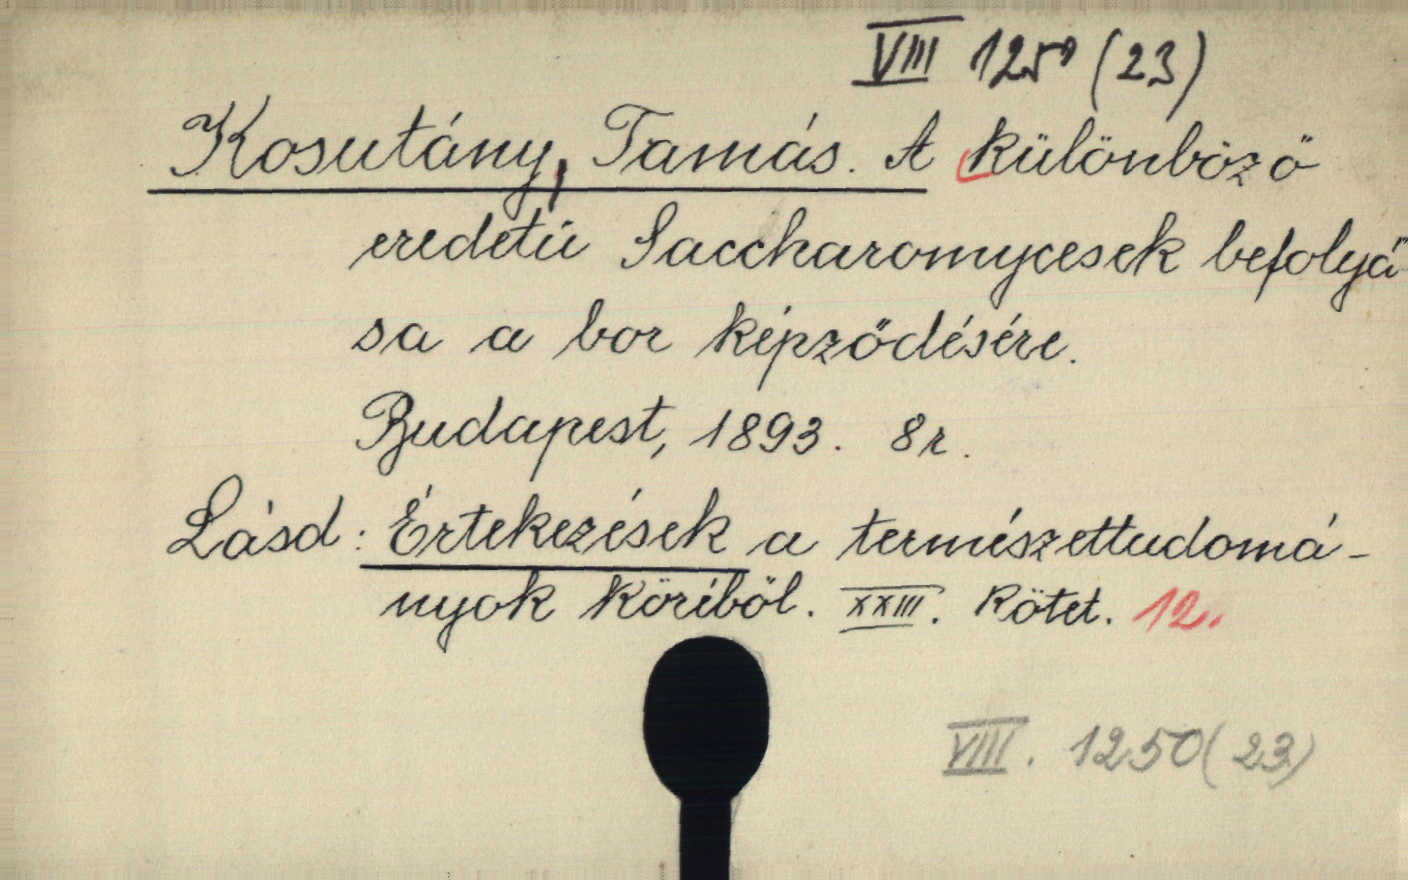 VIII 1250 (23)
Kosutány, Tamás. A különböző
eredetü Saccharomycesek befolyá-
sa a bor képződésére.
Budapest, 1893. 8r.
Lásd: Értekezések a természettudomá-
nyok köréből. XXIII. Kötet. 12.
VIII. 1250 (23)